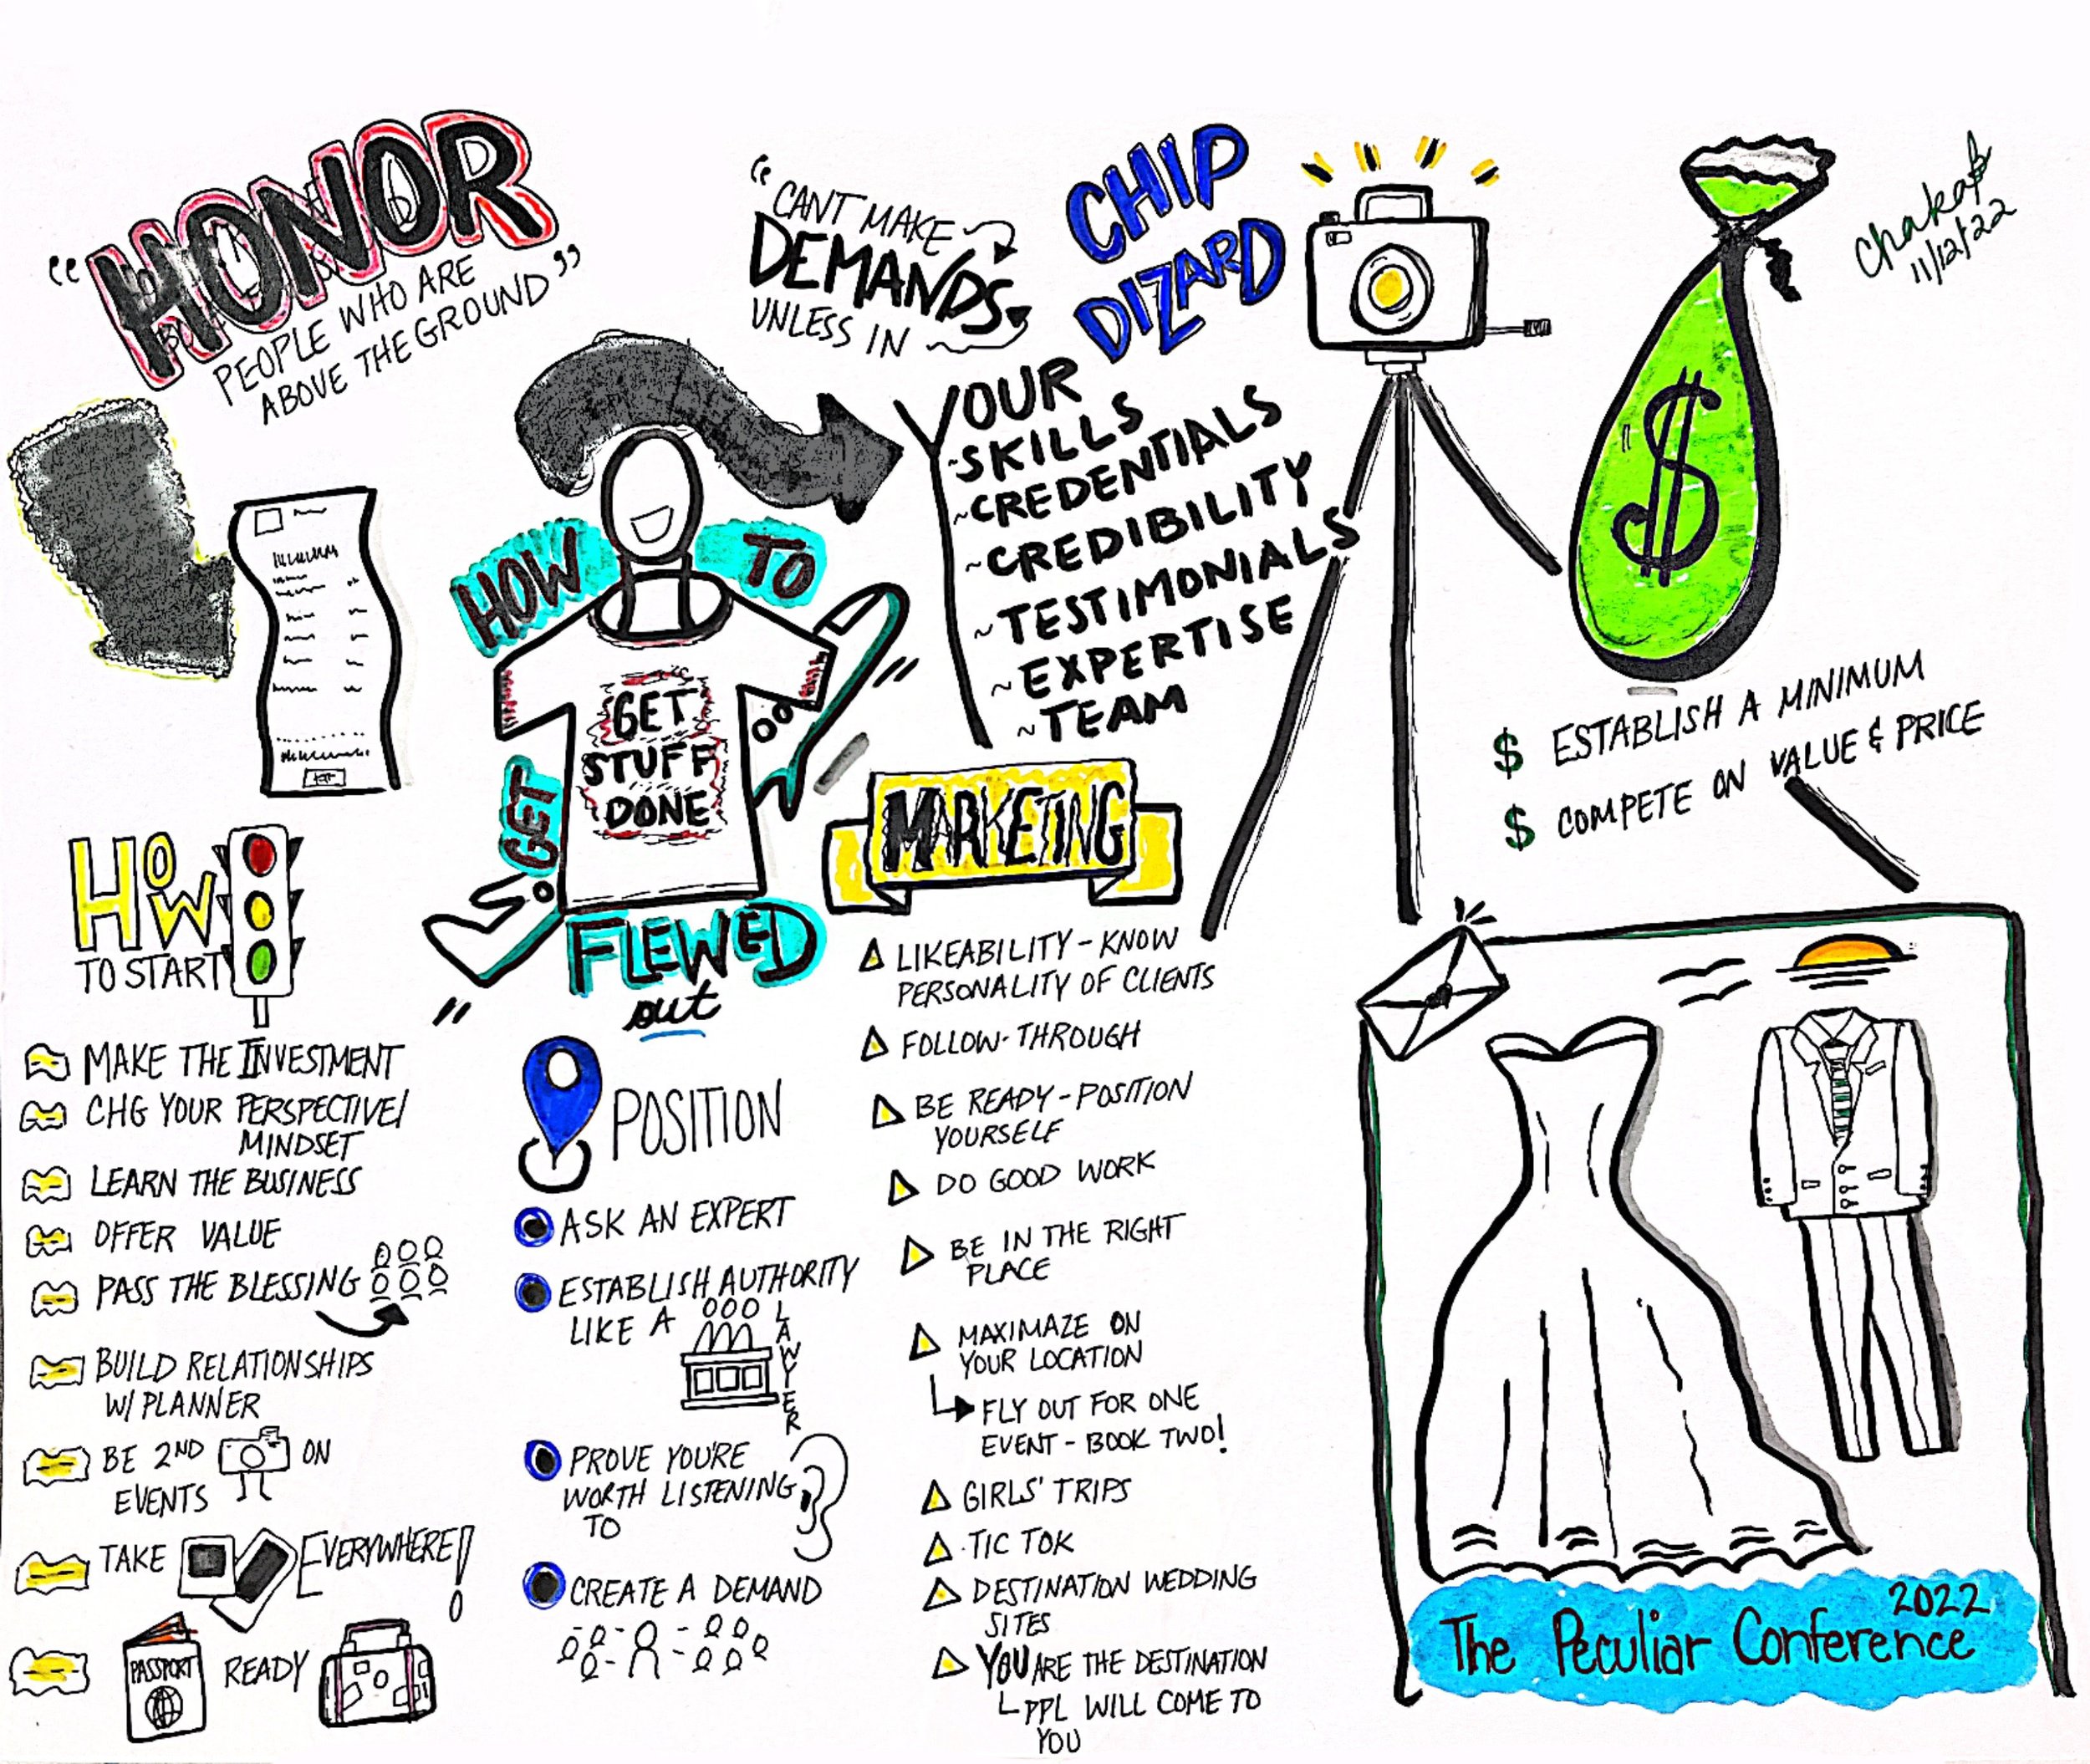 "HONOR
PEOPLE WHO ARE
ABOVE THE GROUND"
"CANT MAKE
DEMANDS
UNLESS IN
YOUR
~SKILLS
~CREDENTIALS
~CREDIBILITY
~TESTIMONIALS
~EXPERTISE
~TEAM
CHIP
DIZARD
$
Chakab
11/12/22
$ ESTABLISH A MINIMUM
$ COMPETE ON VALUE & PRICE
HOW TO
GET
FLEWED
out
GET
STUFF
DONE
HOW
TO START
MAKE THE INVESTMENT
CHG YOUR PERSPECTIVE/
MINDSET
LEARN THE BUSINESS
OFFER VALUE
PASS THE BLESSING
BUILD RELATIONSHIPS
W/ PLANNER
BE 2ND ON
EVENTS
TAKE EVERYWHERE!
PASSPORT
READY
POSITION
ASK AN EXPERT
ESTABLISH AUTHORITY
LIKE A
LAWYER
PROVE YOU'RE
WORTH LISTENING
TO
CREATE A DEMAND
MARKETING
LIKEABILITY - KNOW
PERSONALITY OF CLIENTS
FOLLOW-THROUGH
BE READY - POSITION
YOURSELF
DO GOOD WORK
BE IN THE RIGHT
PLACE
MAXIMAZE ON
YOUR LOCATION
FLY OUT FOR ONE
EVENT - BOOK TWO!
GIRLS' TRIPS
TIC TOK
DESTINATION WEDDING
SITES
YOU ARE THE DESTINATION
PPL WILL COME TO
YOU
2022
The Peculiar Conference